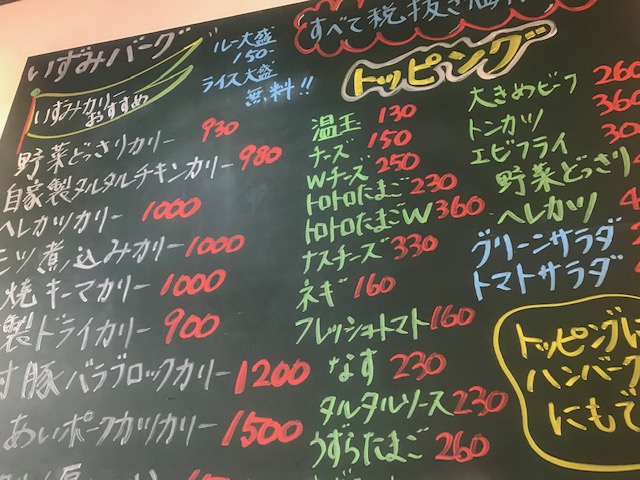 いずみバーグ
ルー大盛
150-
ライス大盛
無料!!
いずみカリー
おすすめ
野菜どっさりカリー 930
自家製タルタルチキンカリー 980
ヘレカツカリー 1000
煮込みカリー 1000
焼キーマカリー 1000
製ドライカリー 900
豚バラブロックカリー 1200
あいポークカツカリー 1500
すべて税抜き
トッピング
温玉 130
チーズ 150
Wチーズ 250
トロトロたまご 230
トロトロたまごW 360
ナスチーズ 330
ネギ 160
フレッシュトマト 160
なす 230
タルタルソース 230
うずらたまご 260
大きめビーフ 260
トンカツ 360
エビフライ 30
野菜どっさり
ヘレカツ
グリーンサラダ
トマトサラダ
トッピングに
ハンバーグ
にもで